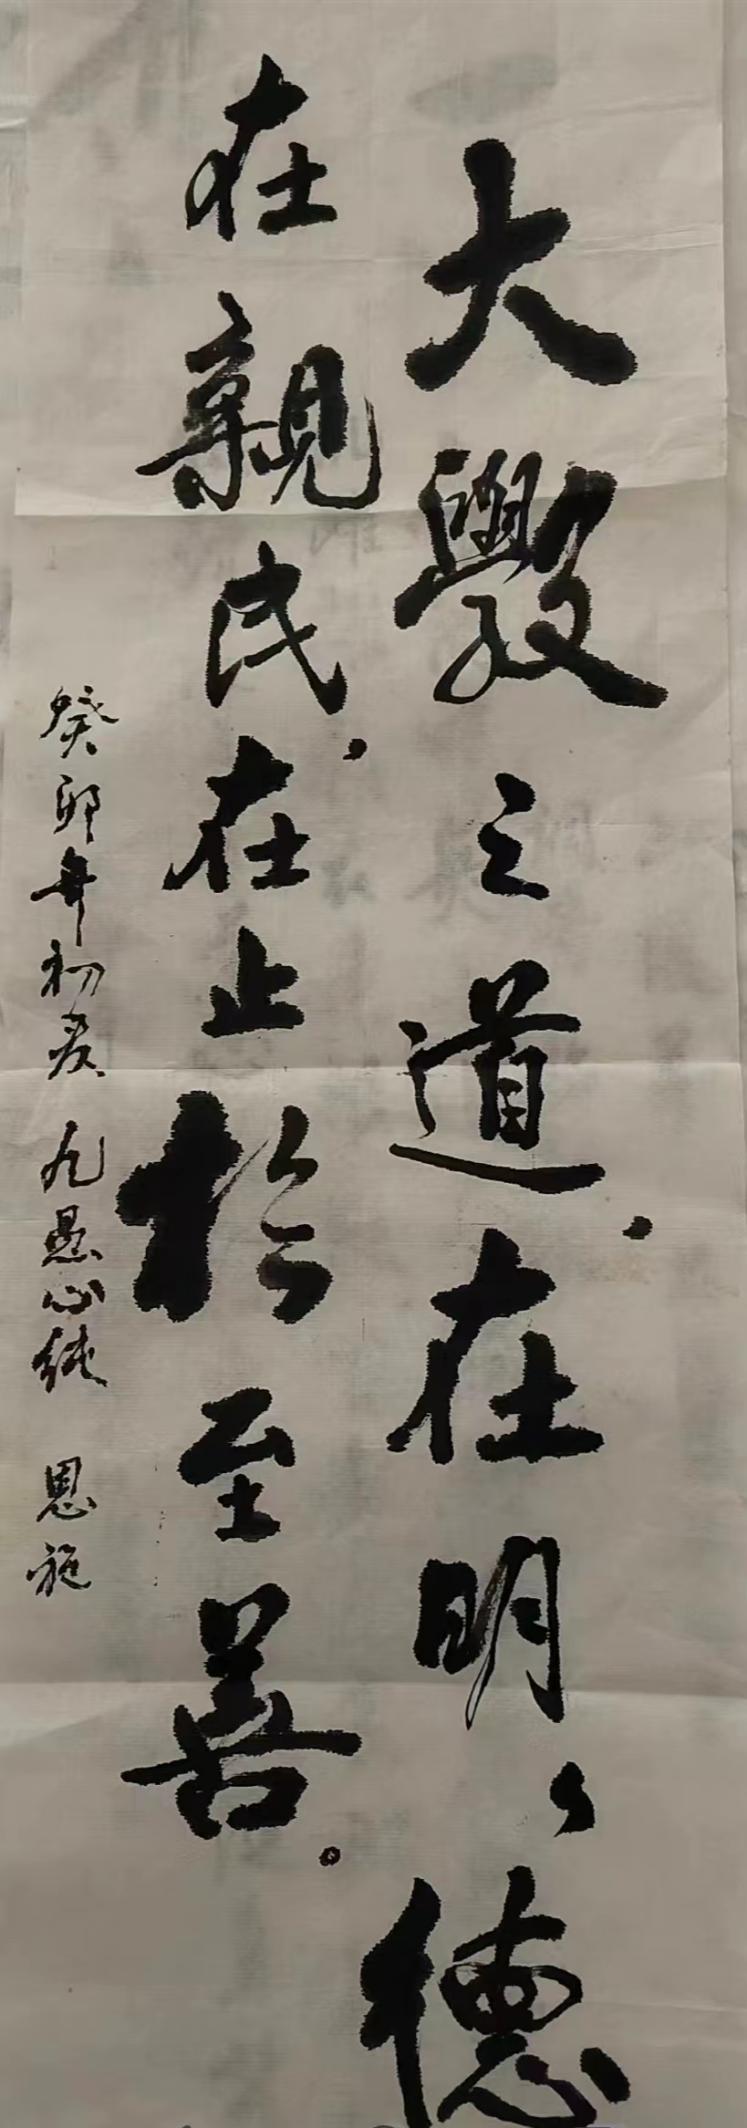 大斆之道，在明々德
在親民，在止於至善。
癸卯年初夏 九 心 恩施